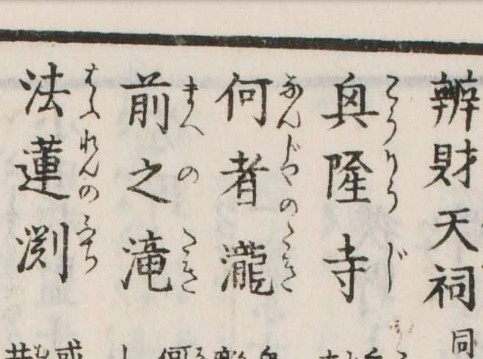 辨財天祠同
興隆寺
こうりうじ
何者瀧
なんじやのたき
前之滝
まへのたき
法蓮渕
ほふれんのふち